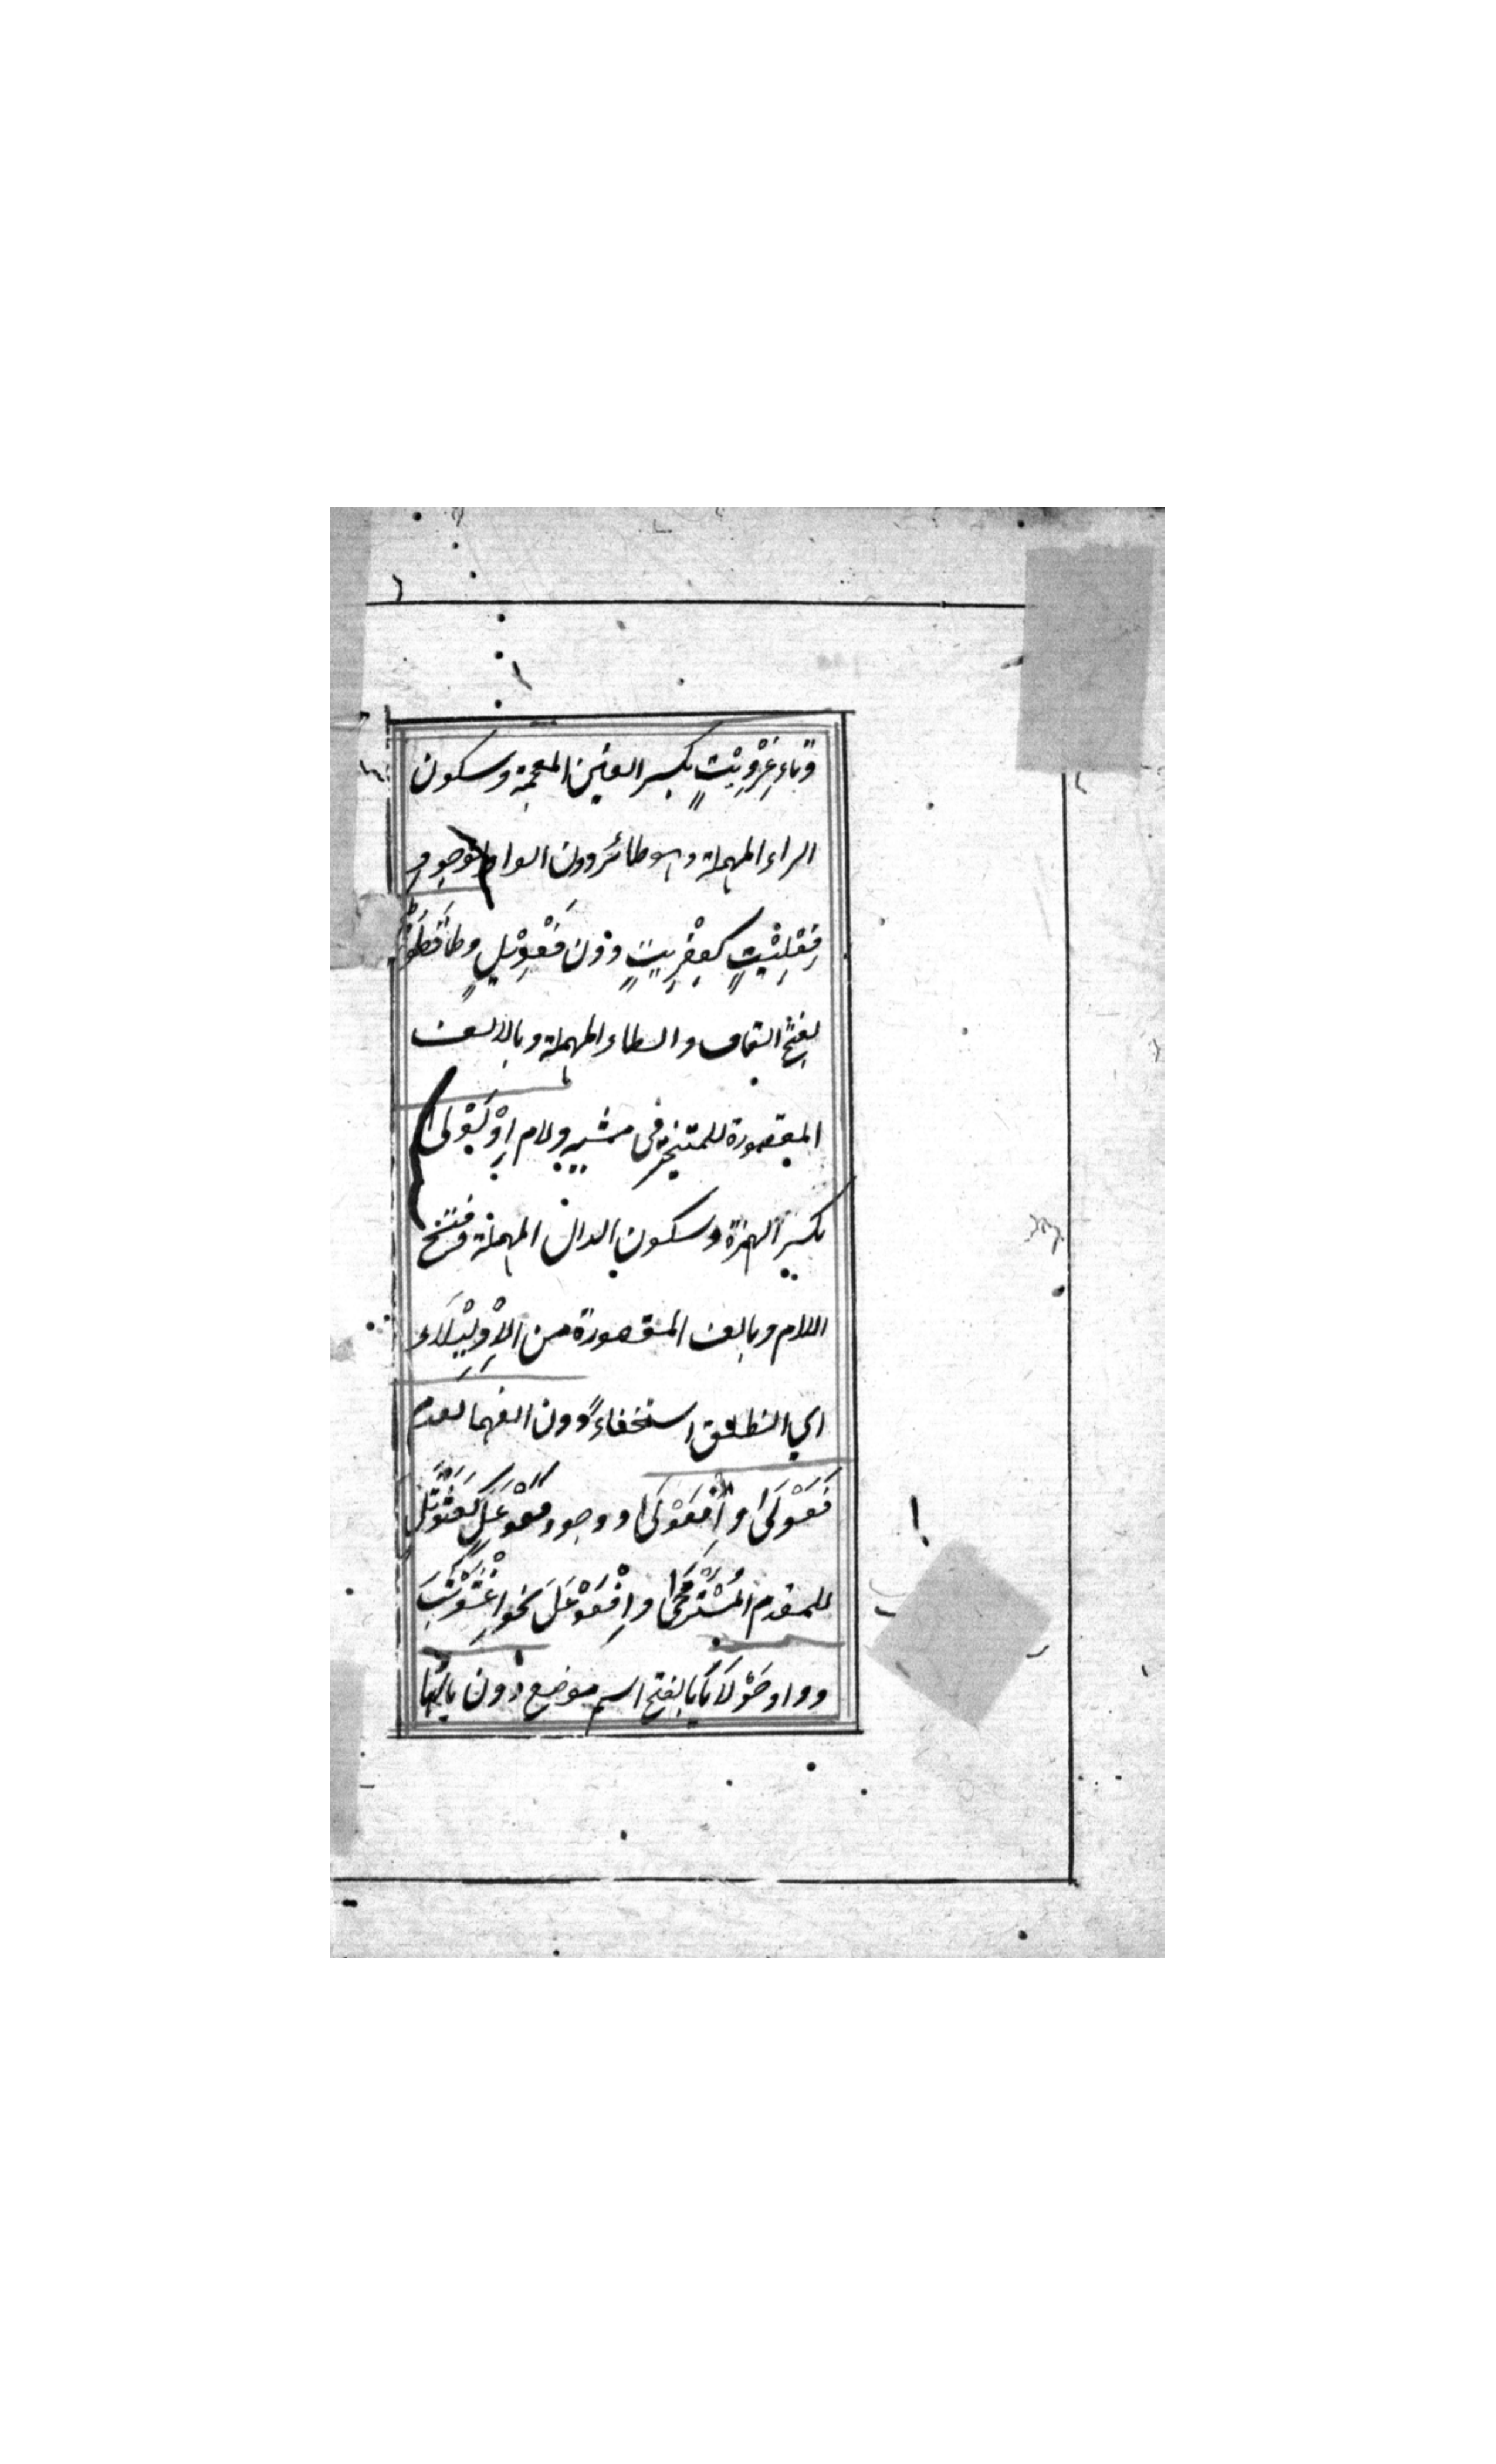 وتاء غِزْوِيْتٍ بكسر الغين المعجمة وسكون
الراء المهملة وهو طائر دون الواو لوجود
فِعْلِيْتٍ كعِفْرِيتٍ دون فَعْوِيْلٍ وطاء قَطَوْ
بفتح القاف والطاء المهملة وبالالف
المقصورة للمتبختر في مشيه ولام اِدْلَوْلى
بكسر الهمزة وسكون الدال المهملة وفتح
اللام وبالف المقصورة من الاِدْلِيْلَاء
اي انطلق استخفاءً دون الفهما لعدم
فَعَوْلَى واِفْعَوْلَى ووجود فَعَوْعَلٍ كعَثَوْثَلٍ
للمقدم المُسْتَرْخى واِفْعَوْعَلَ نحو اِعْشَوْشَبَ
وواو حَوْلَايَا بالفتح اسم موضع دون يائها